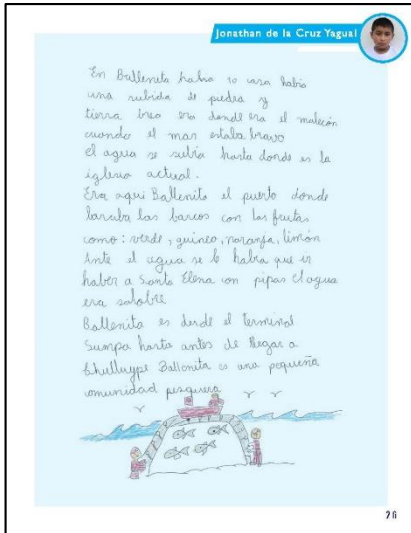 Jonathan de la Cruz Yagual
En Ballenita habia 10 casa habia
una subida de piedra y
tierra brea era donde era el malecón
cuando el mar estaba bravo
el agua se subia hasta donde es la
iglesia actual.
Era aqui Ballenita el puerto donde
las barcos con las frutas
como: verde, guineo, naranja, limón
Ante el agua se le habia que ir
haber a Santa Elena con pipas el agua
era salobre
Ballenita es desde el terminal
Sumpa hasta antes de llegar a
Ballenita es una pequeña
comunidad pesquera
26